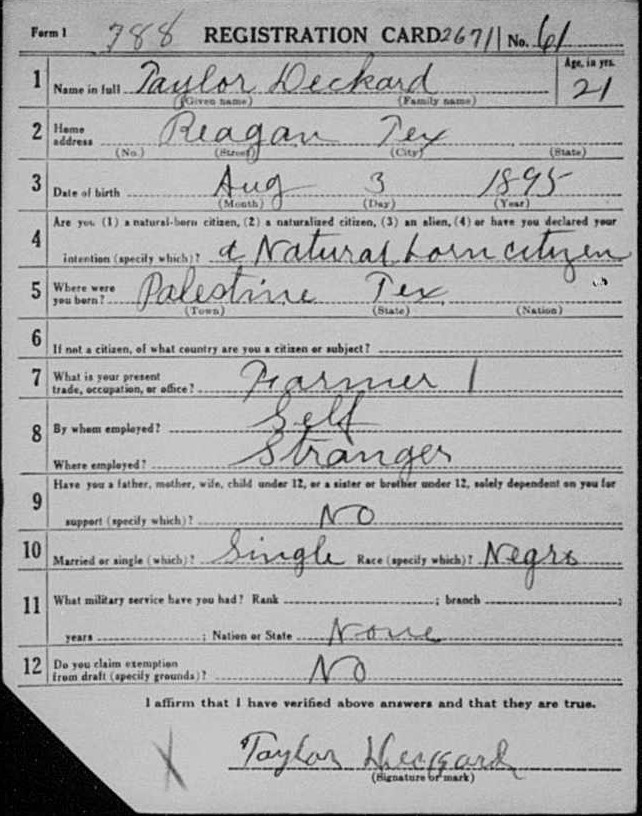 Form 1 788 REGISTRATION CARD 2671 No. 61
1 Name in full Taylor Deckard Age, in yrs. 21
(Given name) (Family name)
2 Home address Reagan Tex
(No.) (Street) (City) (State)
3 Date of birth Aug 3 1895
(Month) (Day) (Year)
4 Are you (1) a natural-born citizen, (2) a naturalized citizen, (3) an alien, (4) or have you declared your
intention (specify which)? a Natural born citizen
5 Where were you born? Palestine Tex
(Town) (State) (Nation)
6 If not a citizen, of what country are you a citizen or subject?
7 What is your present trade, occupation, or office? Farmer 1
8 By whom employed? Self
Where employed? Stranger
9 Have you a father, mother, wife, child under 12, or a sister or brother under 12, solely dependent on you for
support (specify which)? NO
10 Married or single (which)? Single Race (specify which)? Negro
11 What military service have you had? Rank ; branch ;
years ; Nation or State None
12 Do you claim exemption from draft (specify grounds)? NO
I affirm that I have verified above answers and that they are true.
X Taylor Deckard
(Signature or mark)